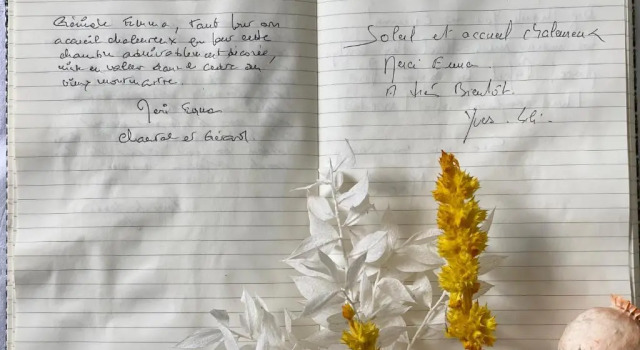 Géniale Emma, tant pour son
accueil chaleureux que pour cette
chambre admirablement décorée,
mise en valeur dans le cadre du
vieux montmartre.
Merci Emma
Chantal et Gérard.
Soleil et accueil chaleureux
Merci Emma
A très Bientôt.
Yves